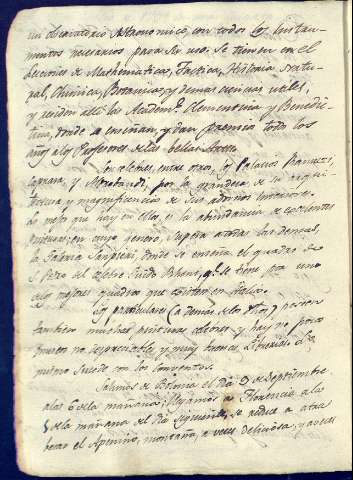 un observatorio Astronomico, con todos los Instru-
mentos necesarios para su uso. se tienen en el
lecciones de Mathematicas, Tactica, Historia Natu-
ral, Chimica, Botanica, y demas ciencias utiles,
y residen alli las Academ.s Clementina y Benedic-
tina, donde se enseñan, y dan premios todos los
años a los Profesores de las bellas Artes.
Son celebres, entre otros, los Palacios
Caprara, y por la grandeza de su arqui-
tectura y magnificencia de sus adornos interiores.
Lo mejor que hay en ellos, es la abundancia de excelentes
Pinturas, en cuyo genero, supera a todas las demas,
la Galeria Sampieri, donde se enseña el quadro de
S. Pedro del celebre Guido Rheni, q.e se tiene por uno
de los mejores quadros que existen en Italia.
Los particulares (a demas de los dhos,) poseen
tambien muchas pinturas celebres, y hay no pocas
puestas no despreciables, y muy buenas,
mismo sucede con los Conventos.
Salimos de Bolonia el dia 9 de Septiembre
a las 6 de la mañana; llegamos a Florencia a las
8 de la mañana del dia siguiente, se reduce a atra-
besar el Apenino, montaña, a veces deliciosa, y a veces